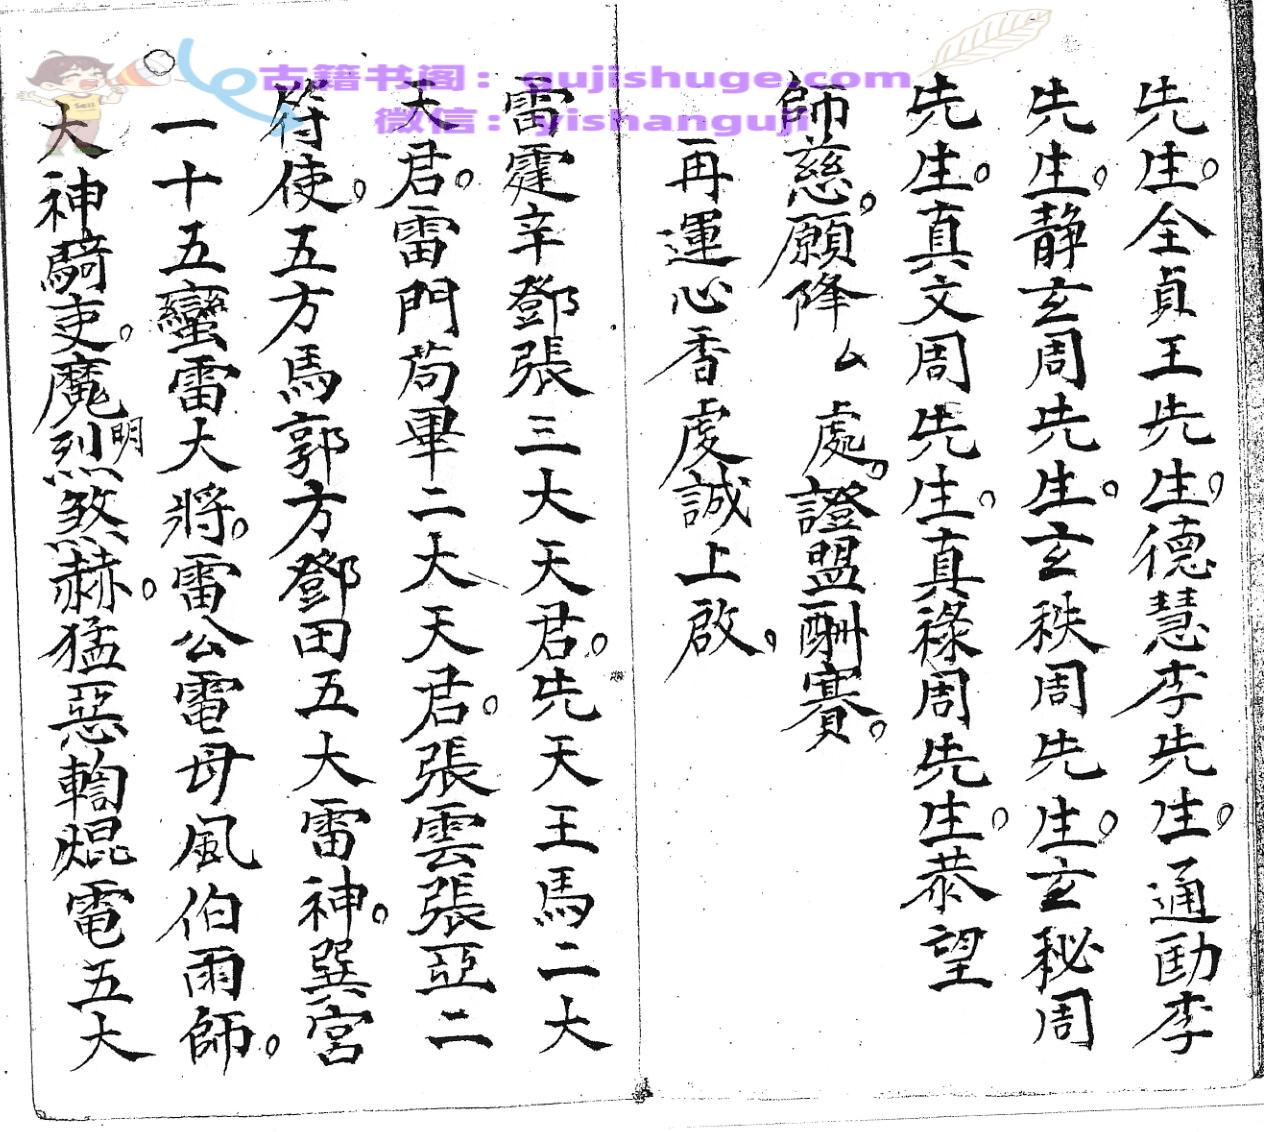 古籍书阁：gujishuge.com
微信：yishanguji
先生。全貞王先生。德慧李先生。通勛李
先生。静玄周先生。玄秩周先生。玄秘周
先生。真文周先生。真祿周先生。恭望
師慈。願降厶處。證盟酬賽。
再運心香虔誠上啟。
雷霆辛鄧張三大天君。先天王馬二大
天君。雷門苟畢二大天君。張雲張亞二
符使。五方馬郭方鄧田五大雷神。巽宮
一十五蠻雷大將。雷公電母風伯雨師。
大神騎吏。魔明烈煞赫。猛惡焜電五大